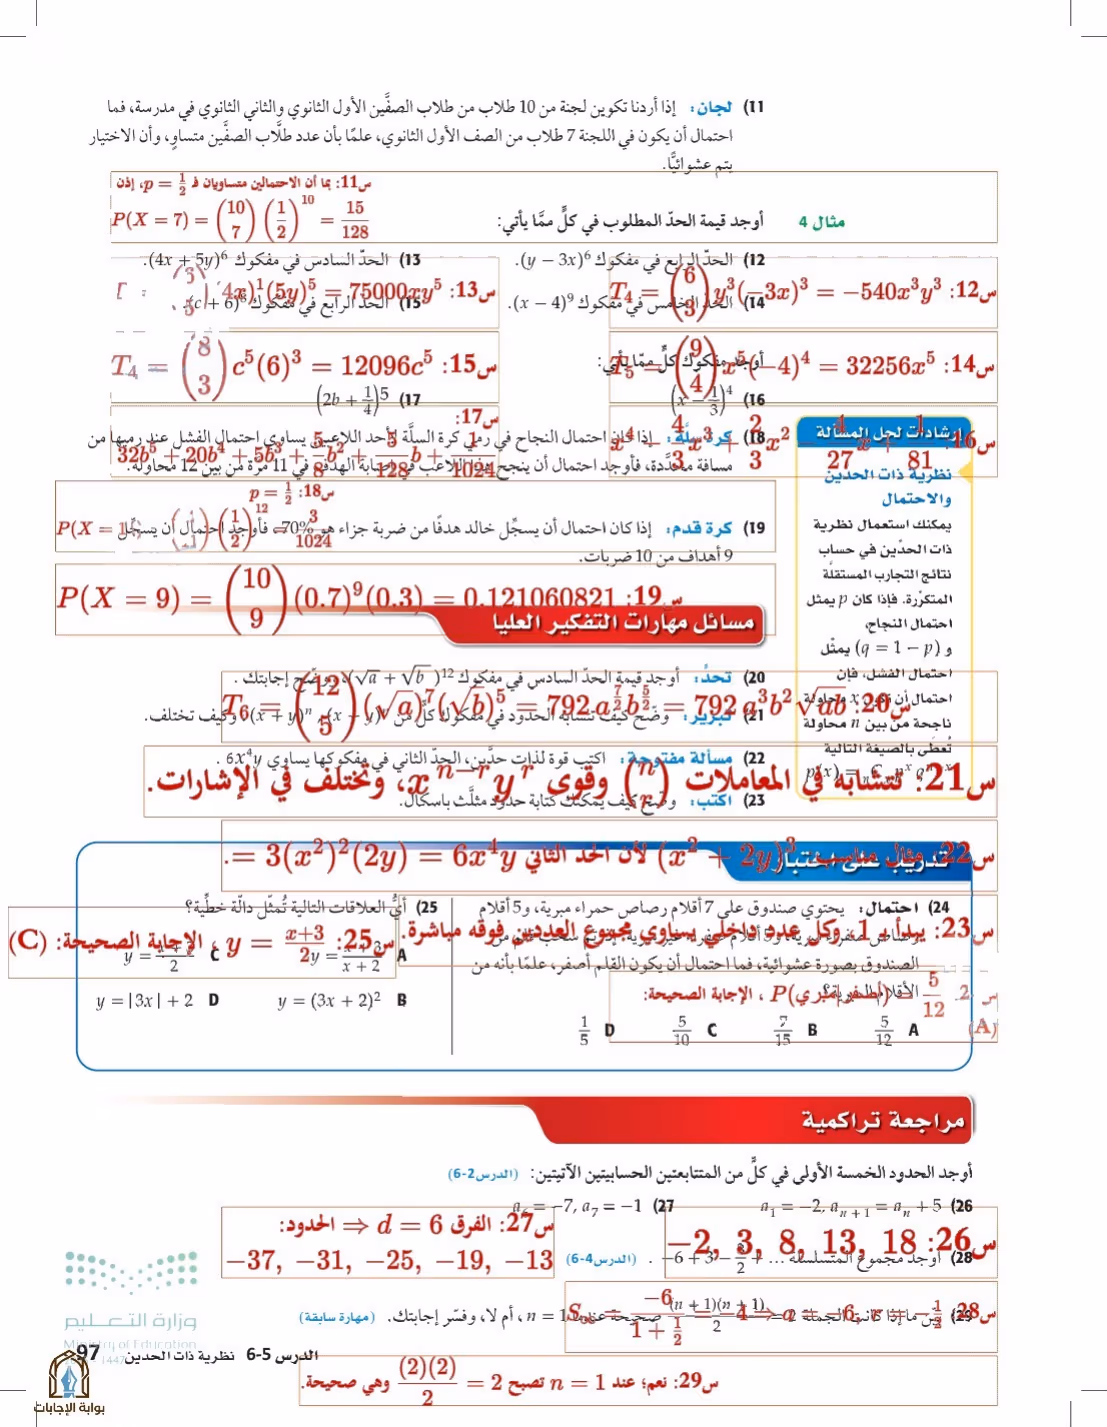 11) لجان: إذا أردنا تكوين لجنة من 10 طلاب من طلاب الصفَّين الأول الثانوي والثاني الثانوي في مدرسة، فما
احتمال أن يكون في اللجنة 7 طلاب من الصف الأول الثانوي، علمًا بأن عدد طلَّاب الصفَّين متساوٍ، وأن الاختيار
يتم عشوائيًّا.
س11: بما أن الاحتمالين متساويان فـ p = 1/2، إذن
P(X = 7) = (10 7) (1/2)^10 = 15/128
مثال 4 أوجد قيمة الحدّ المطلوب في كلٍّ ممَّا يأتي:
12) الحدّ الرابع في مفكوك (y − 3x)^6.
13) الحدّ السادس في مفكوك (4x + 5y)^6.
س12: T4 = (6 3) y^3(−3x)^3 = −540x^3y^3
س13: 4x)^1(5y)^5 = 75000xy^5
14) الحدّ الخامس في مفكوك (x − 4)^9.
15) الحدّ الرابع في مفكوك (c + 6)^8.
س14: T5 = (9 4) x^5(−4)^4 = 32256x^5
س15: T4 = (8 3) c^5(6)^3 = 12096c^5
أوجد مفكوك كلٍّ ممّا يأتي:
16) (x − 1/3)^4
17) (2b + 1/4)^5
س16: x^4 − 4/3 x^3 + 2/3 x^2 − 4/27 x + 1/81
س17:
32b^5 + 20b^4 + 5b^3 + 5/8 b^2 + 5/128 b + 1/1024
18) كرة سلَّة: إذا كان احتمال النجاح في رمي كرة السلَّة لأحد اللاعبين يساوي احتمال الفشل عند رميها من
مسافة محدَّدة، فأوجد احتمال أن ينجح هذا اللاعب في إصابة الهدف في 11 مرة من بين 12 محاولة.
س18: p = 1/2
P(X = 1 (1/2)^12 = 3/1024
19) كرة قدم: إذا كان احتمال أن يسجِّل خالد هدفًا من ضربة جزاء هو 70%، فأوجد احتمال أن يسجِّل
9 أهداف من 10 ضربات.
س19: P(X = 9) = (10 9) (0.7)^9(0.3) = 0.121060821
إرشادات لحل المسألة
نظرية ذات الحدين
والاحتمال
يمكنك استعمال نظرية
ذات الحدّين في حساب
نتائج التجارب المستقلة
المتكرّرة. فإذا كان p يمثل
احتمال النجاح،
و (q = 1 − p) يمثّل
احتمال الفشل، فإن
احتمال أن تكون x محاولة
ناجحة من بين n محاولة
تُعطى بالصيغة التالية
مسائل مهارات التفكير العليا
20) تحدٍّ: أوجد قيمة الحدّ السادس في مفكوك (√a + √b)^12، ووضّح إجابتك.
س20: T6 = (12 5) (√a)^7 (√b)^5 = 792 a^(7/2) b^(5/2) = 792 a^3b^2 √ab
21) تبرير: وضّح كيف تتشابه الحدود في مفكوك كلٍّ من (x − y)^n, (x + y)^n، وكيف تختلف.
س21: تتشابه في المعاملات (n r) وقوى x^(n−r) y^r، وتختلف في الإشارات.
22) مسألة مفتوحة: اكتب قوة لذات حدَّين، الحدّ الثاني في مفكوكها يساوي 6x^4y.
23) اكتب: وضّح كيف يمكنك كتابة حدود مثلّث باسكال.
س22: مثال مناسب (x^2 + 2y)^3 لأن الحد الثاني = 3(x^2)^2(2y) = 6x^4y.
تدريب على اختبار
24) احتمال: يحتوي صندوق على 7 أقلام رصاص حمراء مبرية، و5 أقلام
الصندوق بصورة عشوائية، فما احتمال أن يكون القلم أصفر، علمًا بأنه من
الأقلام المبرية؟
A 5/12 B 7/15 C 5/10 D 1/5
س23: يبدأ بـ 1، وكل عدد داخلي يساوي مجموع العددين فوقه مباشرة.
P(أصفر|مبري) = 5/12، الإجابة الصحيحة:
(A)
25) أيُّ العلاقات التالية تُمثّل دالّة خطِّية؟
س25: y = (x+3)/2، الإجابة الصحيحة: (C)
B y = (3x + 2)^2
D y = |3x| + 2
مراجعة تراكمية
أوجد الحدود الخمسة الأولى في كلٍّ من المتتابعتين الحسابيتين الآتيتين: (الدرس 2-6)
26) a1 = −2, a n+1 = a n + 5
27) a6 = −7, a7 = −1
س26: −2, 3, 8, 13, 18
س27: الفرق d = 6 ⇒ الحدود:
−37, −31, −25, −19, −13
28) أوجد مجموع المتسلسلة … + 3/2 − 3 + 6−. (الدرس 4-6)
س28: S∞ = −6/(1 + 1/2) = −4 ⇒ a = −6, r = −1/2
29) بيّن ما إذا كانت الجملة (n + 1)(n + 1)/2 = 2 صحيحة عندما n = 1، أم لا، وفسّر إجابتك. (مهارة سابقة)
س29: نعم؛ عند n = 1 تصبح (2)(2)/2 = 2 وهي صحيحة.
وزارة التعليم
Ministry of Education
1447
الدرس 5-6 نظرية ذات الحدين 97
بوابة الإجابات